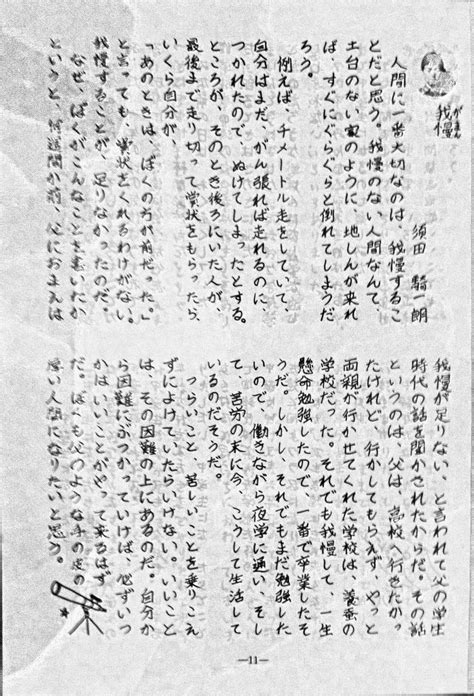 我慢
がまん
須田 騎一朗
人間に一番大切なのは、我慢するこ
とだと思う。我慢のない人間なんて、
土台のない家のように、地しんが来れ
ば、すぐにぐらぐらと倒れてしまうだ
ろう。
例えば、千メートル走をしていて、
自分はまだ、がん張れば走れるのに、
つかれたので、ぬけてしまったとする。
ところが、そのとき後ろにいた人が、
最後まで走り切って賞状をもらったら、
いくら自分が、
「あのときは、ぼくの方が前だった。」
と言っても、賞状をくれるわけがない。
我慢することが、足りなかったのだ。
なぜ、ぼくがこんなことを書いたか
というと、何週間か前、父におまえは
我慢が足りない、と言われて父の学生
時代の話を聞かされたからだ。その話
というのは、父は、高校へ行きたかっ
たけれど、行かしてもらえず、やっと
両親が行かせてくれた学校は、養蚕の
学校だった。それでも我慢して、一生
懸命勉強したので、一番で卒業したそ
うだ。しかし、それでもまだ勉強した
いので、働きながら夜学に通い、そし
て、苦労の末に今、こうして生活して
いるのだそうだ。
つらいこと、苦しいことを乗りこえ
ずによけていたらいけない。いいこと
は、その困難の上にあるのだ。自分か
ら困難にぶつかっていけば、必ずいつ
かはいいことがやって来るはず
だ。ぼくも父のような手の皮の
厚い人間になりたいと思う。
—11—